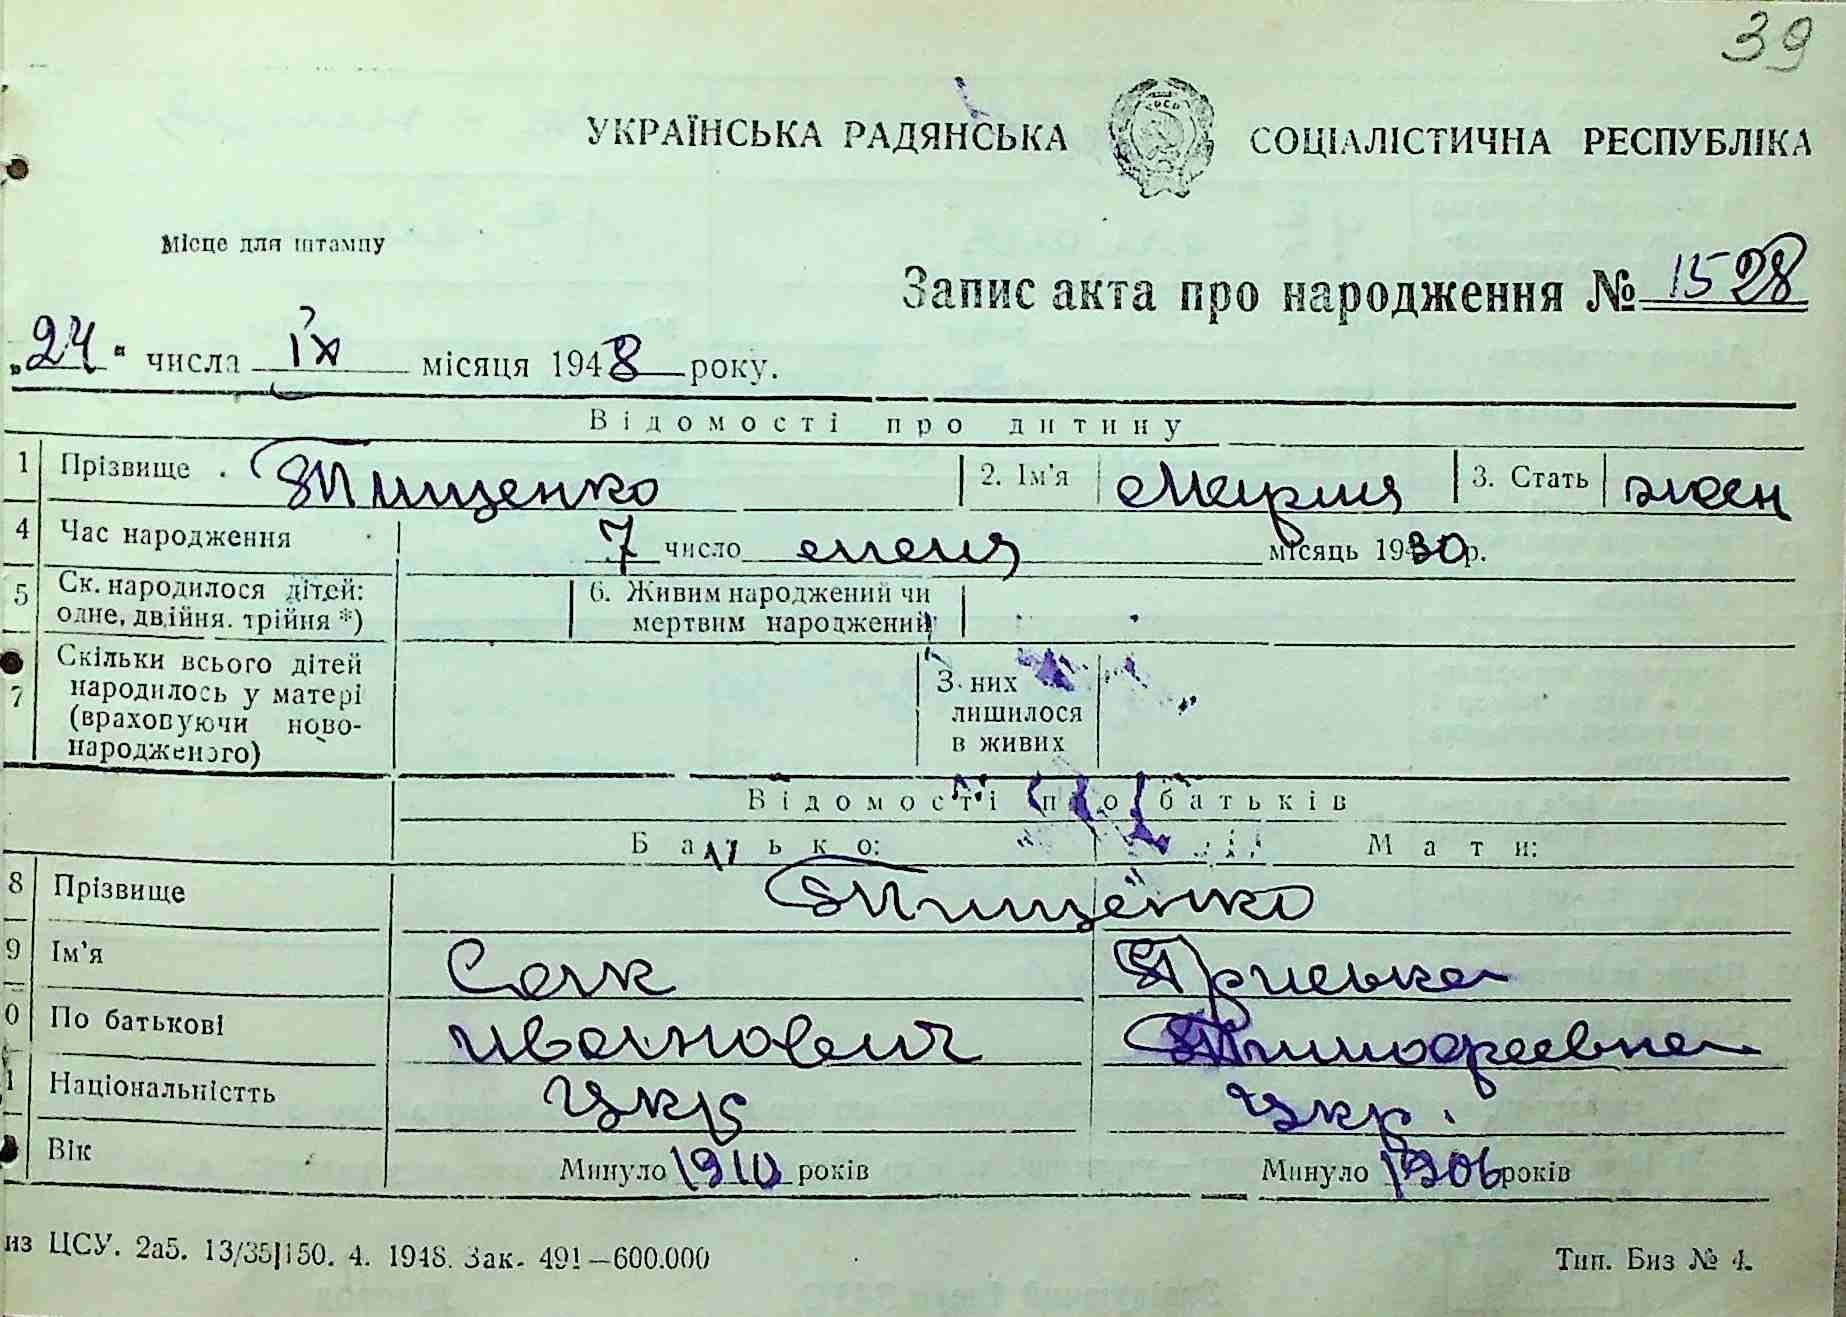 39
УКРАЇНСЬКА РАДЯНСЬКА СОЦІАЛІСТИЧНА РЕСПУБЛІКА
Місце для штампу
Запис акта про народження № 1528
„24“ числа IX місяця 1948 року.
Відомості про дитину
1 Прізвище . Тищенко 2. Ім'я Мария 3. Стать жен
4 Час народження 7 число июня місяць 1930 р.
5 Ск. народилося дітей: одне, двійня. трійня *) 6. Живим народжений чи мертвим народжений
7 Скільки всього дітей народилось у матері (враховуючи ново-народженого) З них лишилося в живих
Відомості про батьків
Батько: Мати:
8 Прізвище Тищенко
9 Ім'я Сак Приська
0 По батькові Иванович Тимофеевна
1 Національністть Укр Укр.
Вік Минуло 1910 років Минуло 1906 років
из ЦСУ. 2а5. 13/35|150. 4. 1948. Зак. 491—600.000 Тип. Биз № 4.